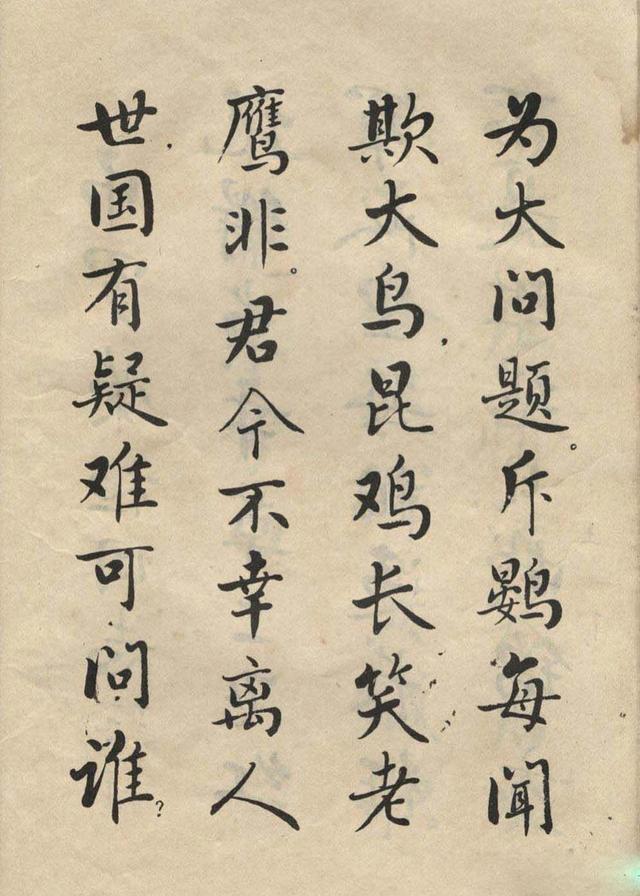 为大问题。斥鷃每闻
欺大鸟,昆鸡长笑老
鹰非。君今不幸离人
世,国有疑难可问谁?